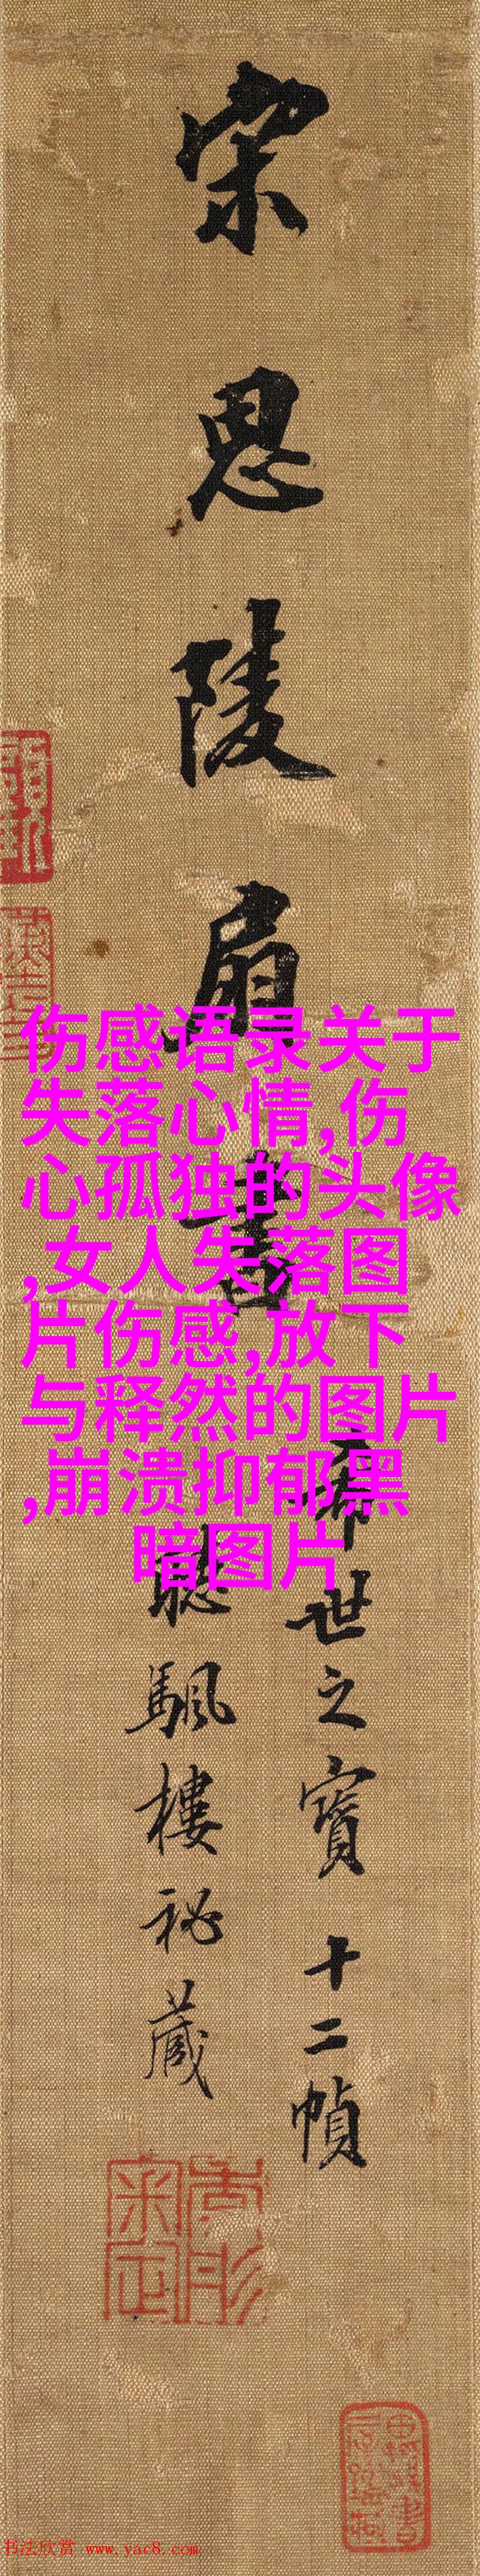 宋思陵扇書
希世之寶 十二幀
聽颿樓祕藏
伤感语录关于
失落心情,伤
心孤独的头像
,女人失落图
片伤感,放下
与释然的图片
,崩溃抑郁黑
暗图片
书法欣赏 www.yac8.com